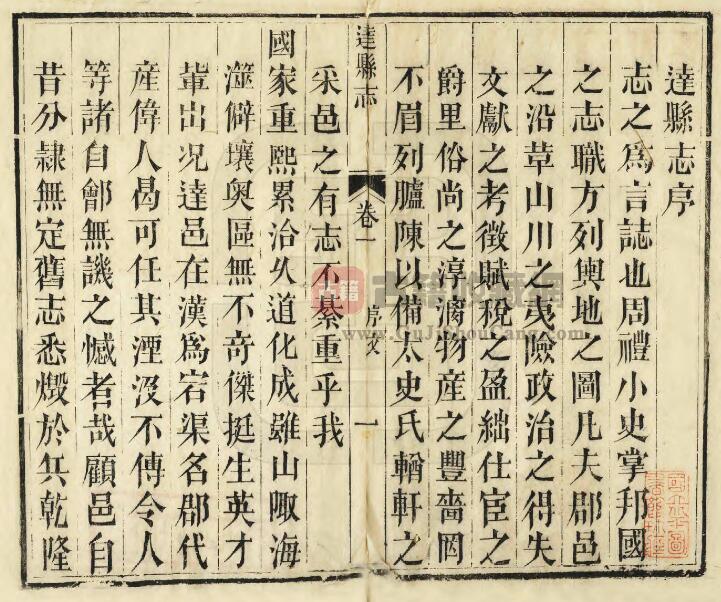 達縣志序
志之爲言誌也周禮小史掌邦國
之志職方列輿地之圖凡夫郡邑
之沿革山川之夷險政治之得失
文獻之考徵賦稅之盈絀仕宦之
爵里俗尚之淳漓物產之豐嗇罔
不眉列臚陳以備太史氏輶軒之
達縣志
卷一
序文
一
采邑之有志不綦重乎我
國家重熙累洽久道化成雖山陬海
澨僻壤奧區無不奇傑挺生英才
輩出况達邑在漢爲宕渠名郡代
產偉人曷可任其湮沒不傳令人
等諸自鄶無譏之憾者哉顧邑自
昔分隸無定舊志悉燬於兵乾隆
古籍
www.GuJiShouCang.com